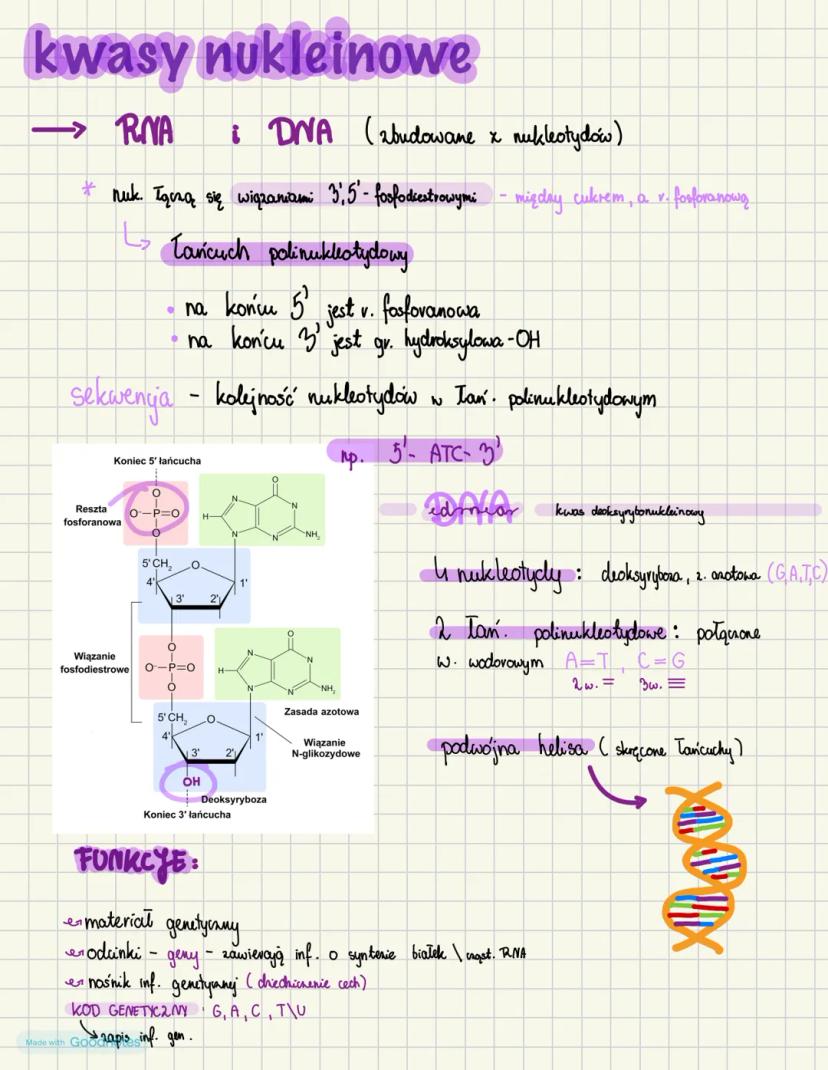 kwasy nukleinowe
→ RNA i DNA (zbudowane z nukleotydów)
* nuk. łączą się wiązaniami 3',5'- fosfodiestrowymi - między cukrem, a r. fosforanową
łańcuch polinukleotydowy
• na końcu 5' jest r. fosforanowa
• na końcu 3' jest gr. hydroksylowa -OH
sekwencja - kolejność nukleotydów w łań. polinukleotydowym
np. 5'- ATC- 3'
Koniec 5' łańcucha
Reszta
fosforanowa
O
O⁻ P O
O
O
N
N
H
N
N
NH₂
5' CH₂
O
4'
1'
3'
2'
Wiązanie
fosfodiestrowe
O
O⁻ P O
O
O
N
N
H
N
N
NH₂
Zasada azotowa
5' CH₂
O
4'
1'
3'
2'
Wiązanie
N-glikozydowe
OH
Deoksyryboza
Koniec 3' łańcucha
DNA kwas deoksyrybonukleinowy
4 nukleotydy: deoksyryboza, z. azotowa (G,A,T,C)
2 łań. polinukleotydowe: połączone
w. wodorowym A=T, C=G
2w. = 3w. ≡
podwójna helisa (skręcone łańcuchy)
FUNKCJE:
materiał genetyczny
odcinki - geny - zawierają inf. o syntezie białek \ cząst. RNA
nośnik inf. genetycznej (dziedziczenie cech)
KOD GENETYCZNY: G, A, C, T\U
zapis inf. gen.
Made with Goodnotes